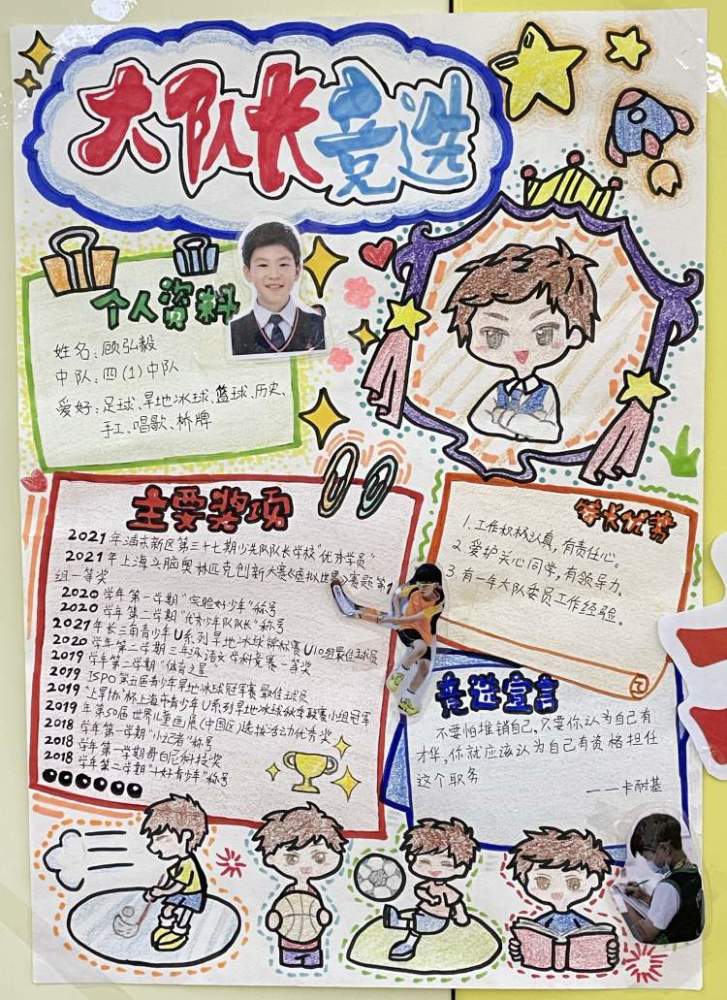 大队长竞选
个人资料
姓名:顾弘毅
中队:四(1)中队
爱好:足球、旱地冰球、篮球、历史、
手工、唱歌、桥牌
主要奖项
2021年浦东新区第三十七期少先队队长学校"优秀学员"
2021年上海头脑奥林匹克创新大赛《虚拟世界》赛题第1
组一等奖
2020学年第一学期"实验好少年"称号
2020学年第二学期"优秀少年队队长"称号
2021年长三角青少年U系列旱地冰球锦标赛U10组最佳球员
2020学年第二学期三年级语文学科竞赛一等奖
2019学年第二学期"体育之星"
2019 ISPO第五届青少年旱地冰球冠军赛 最佳球员
2019"上旱协"杯上海市青少年U系列旱地冰球秋季联赛小组冠军
2019年第50届世界儿童画展(中国区)选拔活动优秀奖
2018学年第一学期"小记者"称号
2018学年第一学期爵自己科技奖
2018学年第二学期"十好青少年"称号
特长优势
1.工作积极认真,有责任心。
2.爱护关心同学,有领导力。
3.有一年大队委员工作经验。
竞选宣言
不要怕推销自己,只要你认为自己有
才华,你就应该认为自己有资格担任
这个职务
——卡耐基